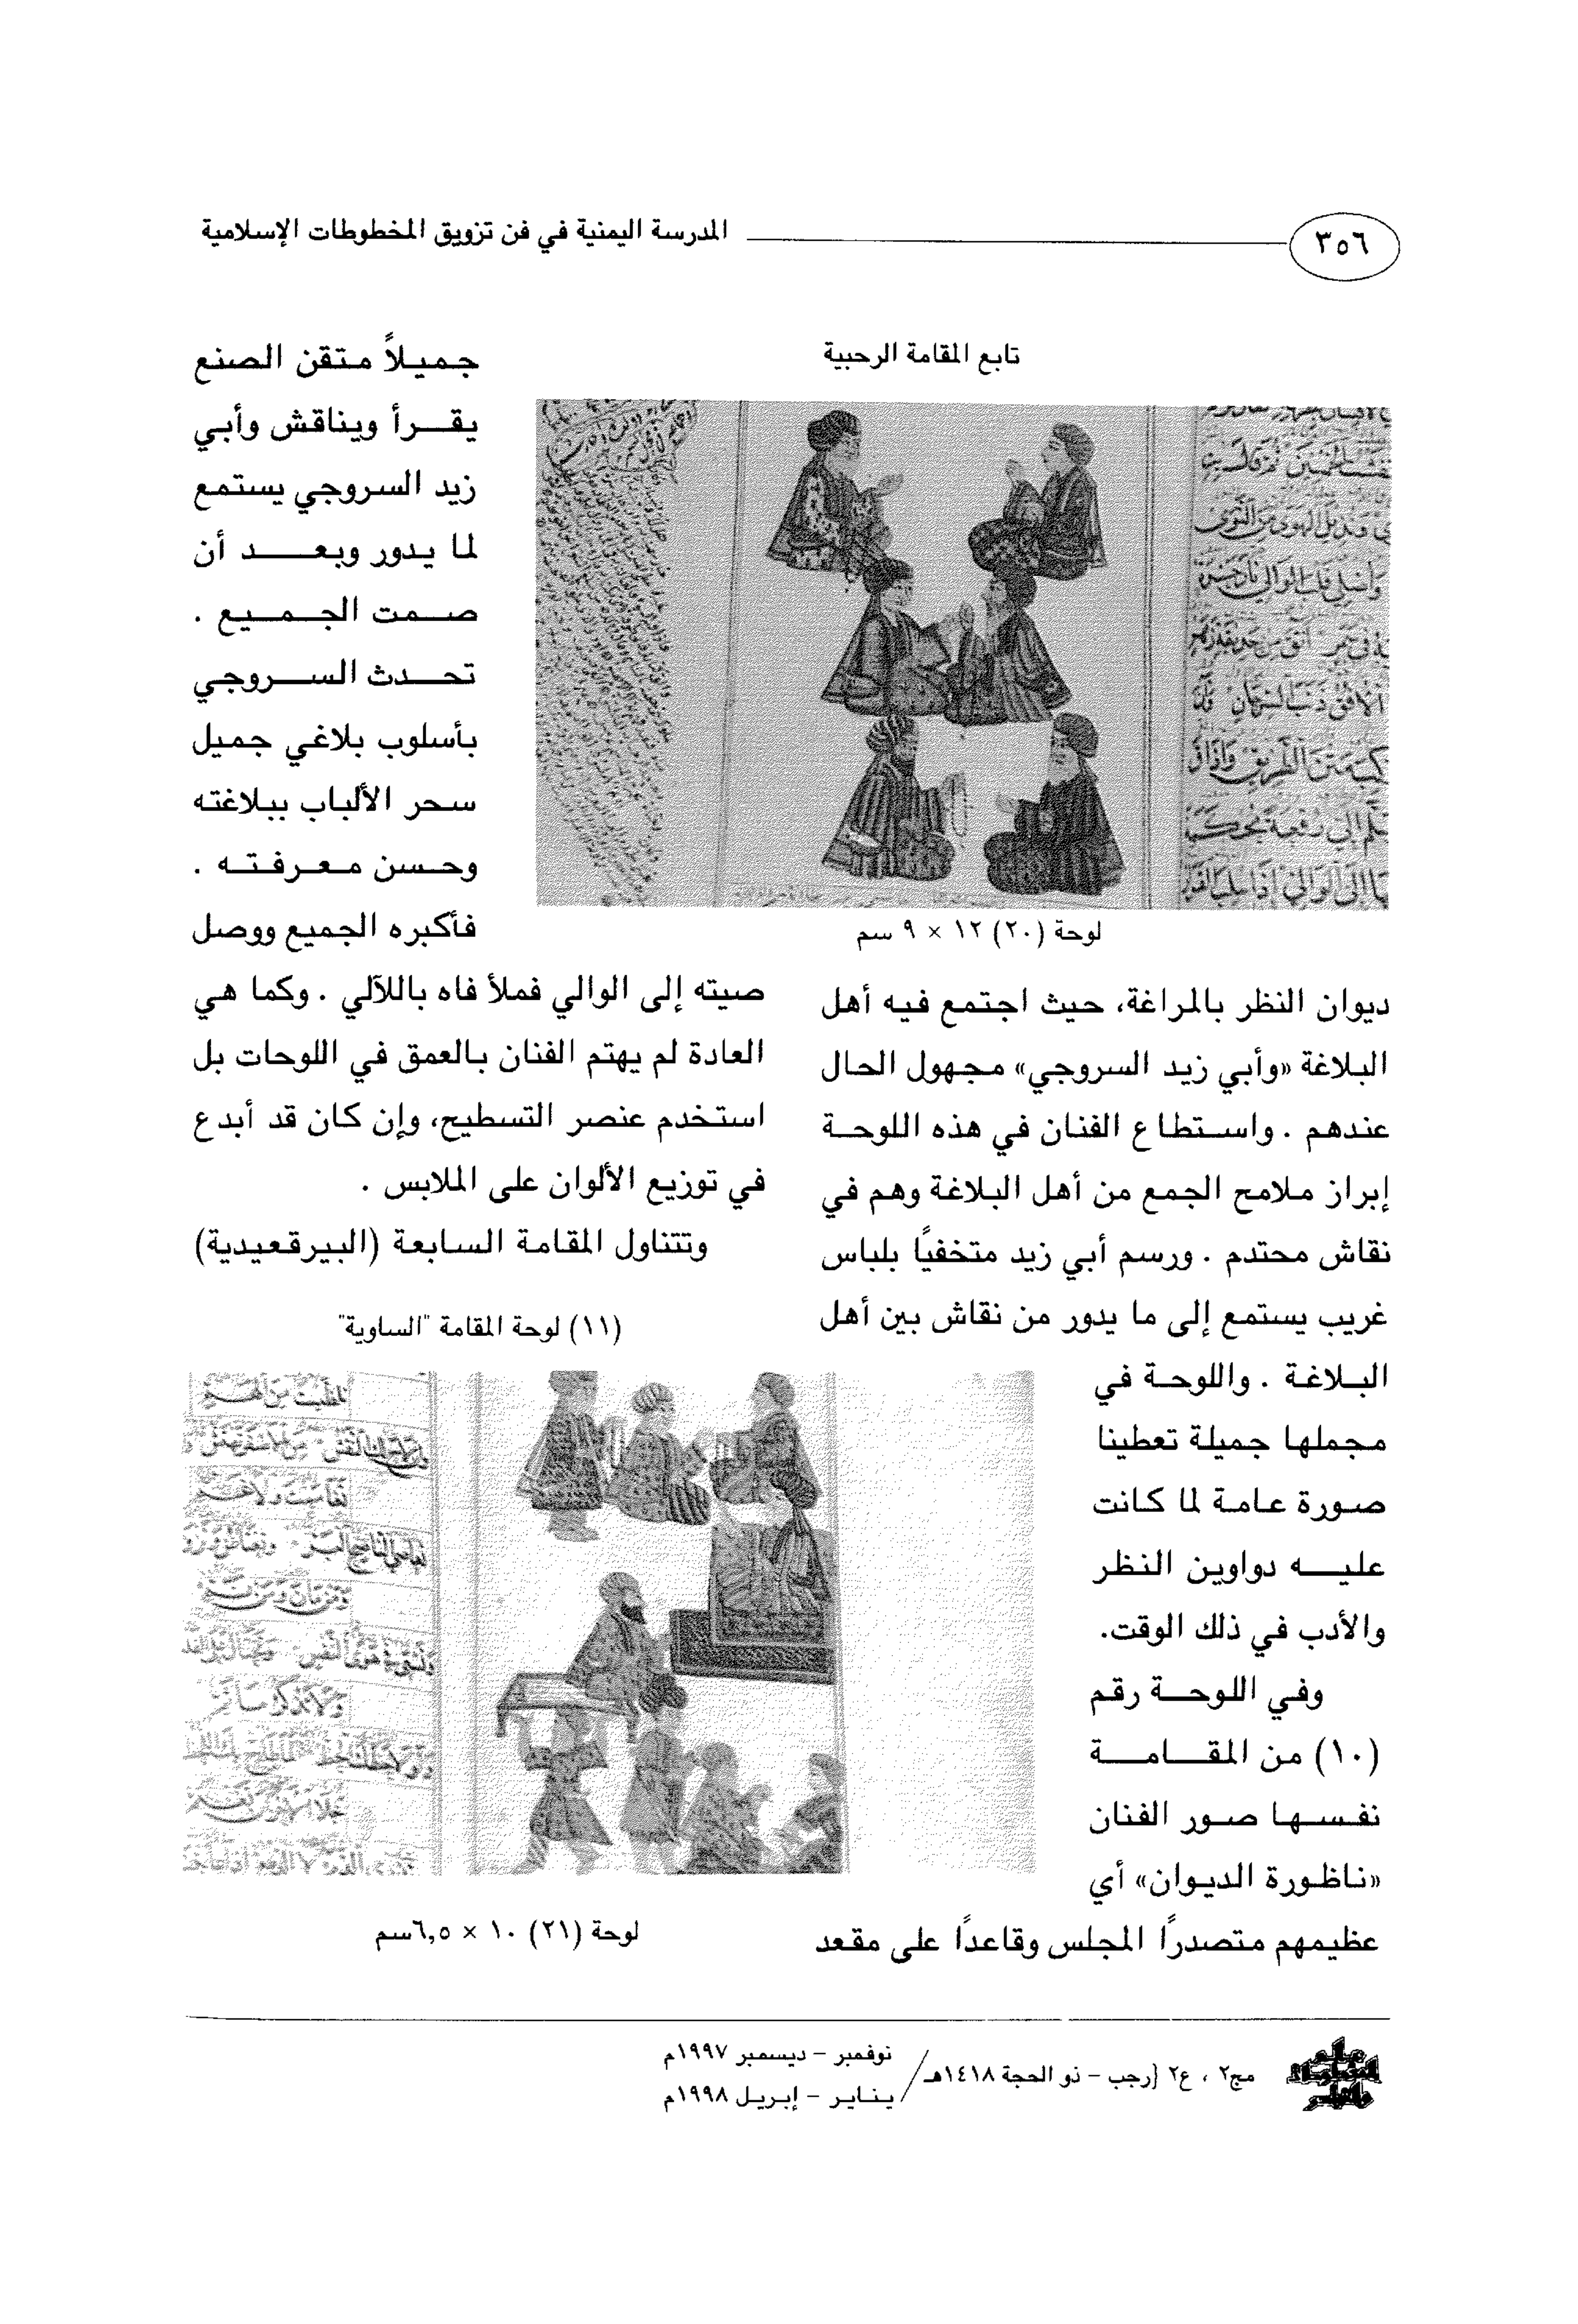 ٣٥٦
المدرسة اليمنية في فن تزويق المخطوطات الإسلامية
تابع المقامة الرحبية
لوحة (٢٠) ١٢ × ٩ سم
ديوان النظر بالمراغة، حيث اجتمع فيه أهل
البلاغة «وأبي زيد السروجي» مجهول الحال
عندهم . واستطاع الفنان في هذه اللوحة
إبراز ملامح الجمع من أهل البلاغة وهم في
نقاش محتدم . ورسم أبي زيد متخفيًا بلباس
غريب يستمع إلى ما يدور من نقاش بين أهل
البلاغة . واللوحة في
مجملها جميلة تعطينا
صورة عامة لما كانت
عليه دواوين النظر
والأدب في ذلك الوقت.
وفي اللوحة رقم
(١٠) من المقامة
نفسها صور الفنان
«ناظورة الديوان» أي
عظيمهم متصدرًا المجلس وقاعدًا على مقعد
جميلاً متقن الصنع
يقرأ ويناقش وأبي
زيد السروجي يستمع
لما يدور وبعد أن
صمت الجميع .
تحدث السروجي
بأسلوب بلاغي جميل
سحر الألباب ببلاغته
وحسن معرفته .
فأكبره الجميع ووصل
صيته إلى الوالي فملأ فاه باللآلي . وكما هي
العادة لم يهتم الفنان بالعمق في اللوحات بل
استخدم عنصر التسطيح، وإن كان قد أبدع
في توزيع الألوان على الملابس .
وتتناول المقامة السابعة (البيرقعيدية)
(١١) لوحة المقامة "الساوية"
لوحة (٢١) ١٠ × ٦,٥سم
مج٢ ، ع٢ {رجب – ذو الحجة ١٤١٨هـ/
نوفمبر – ديسمبر ١٩٩٧م
يناير – إبريل ١٩٩٨م